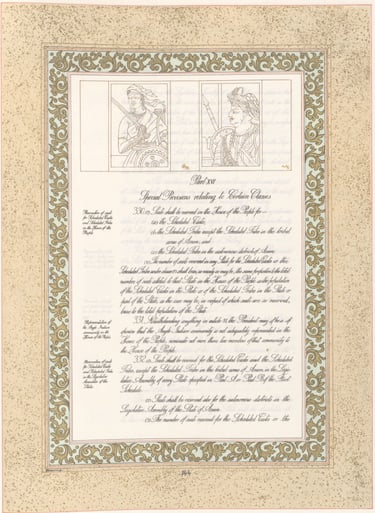 Part XVI
Special Provisions relating to Certain Classes
Reservation of seats
for Scheduled Castes
and Scheduled Tribes
in the House of the
People.
330. (1) Seats shall be reserved in the House of the People for—
(a) the Scheduled Castes;
(b) the Scheduled Tribes except the Scheduled Tribes in the tribal
areas of Assam; and
(c) the Scheduled Tribes in the autonomous districts of Assam.
(2) The number of seats reserved in any State for the Scheduled Castes or the
Scheduled Tribes under clause (1) shall bear, as nearly as may be, the same proportion to the total
number of seats allotted to that State in the House of the People as the population
of the Scheduled Castes in the State or of the Scheduled Tribes in the State or
part of the State, as the case may be, in respect of which seats are so reserved,
bears to the total population of the State.
Representation of
the Anglo-Indian
community in the
House of the People.
331. Notwithstanding anything in article 81, the President may, if he is of
opinion that the Anglo-Indian community is not adequately represented in the
House of the People, nominate not more than two members of that community to
the House of the People.
Reservation of seats
for Scheduled Castes
and Scheduled Tribes
in the Legislative
Assemblies of the
States.
332. (1) Seats shall be reserved for the Scheduled Castes and the Scheduled
Tribes, except the Scheduled Tribes in the tribal areas of Assam, in the Legis-
lative Assembly of every State specified in Part A or Part B of the First
Schedule.
(2) Seats shall be reserved also for the autonomous districts in the
Legislative Assembly of the State of Assam.
(3) The number of seats reserved for the Scheduled Castes or the
144